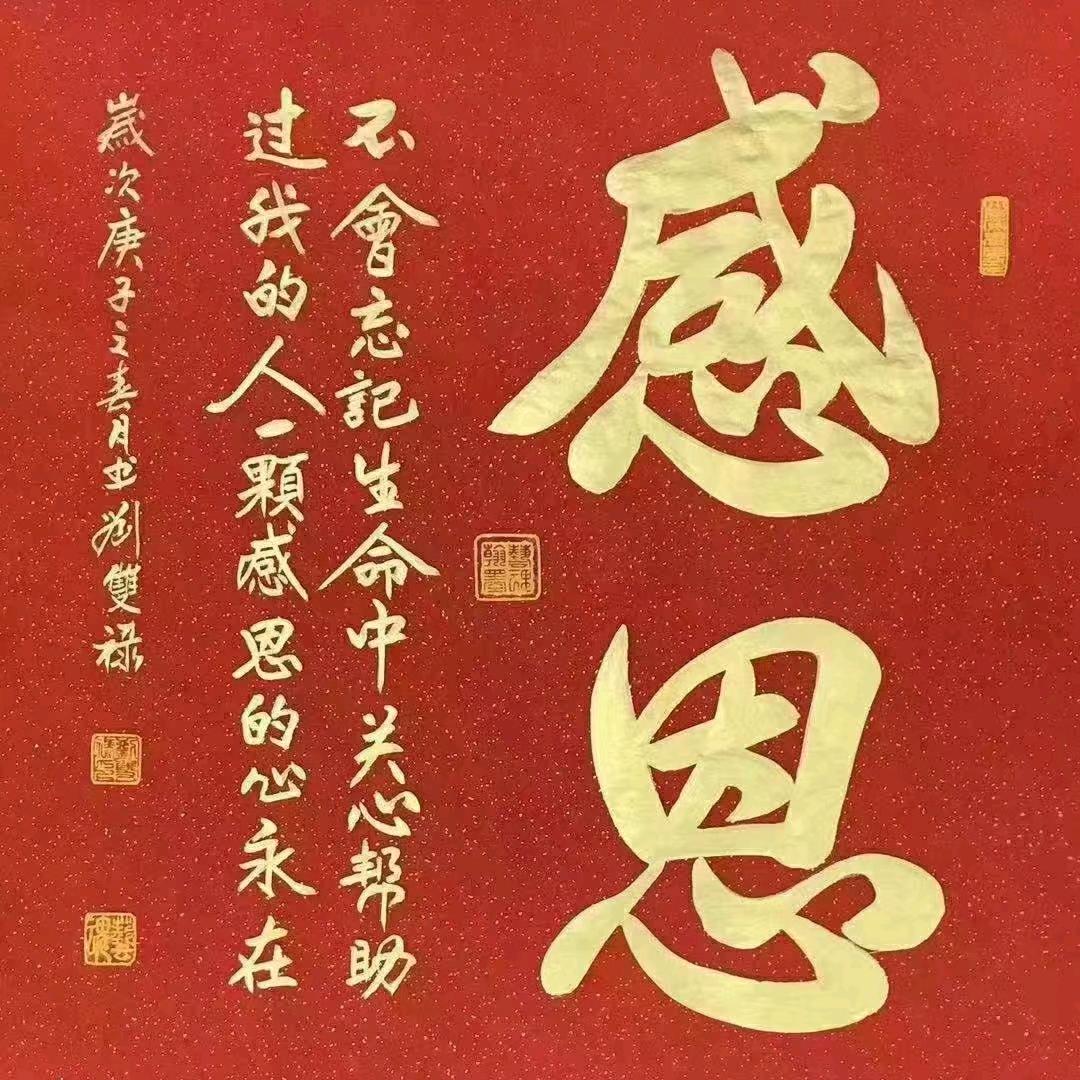 感恩
不會忘記生命中关心帮助
过我的人一顆感恩的心永在
歲次庚子之春月书劉雙禄